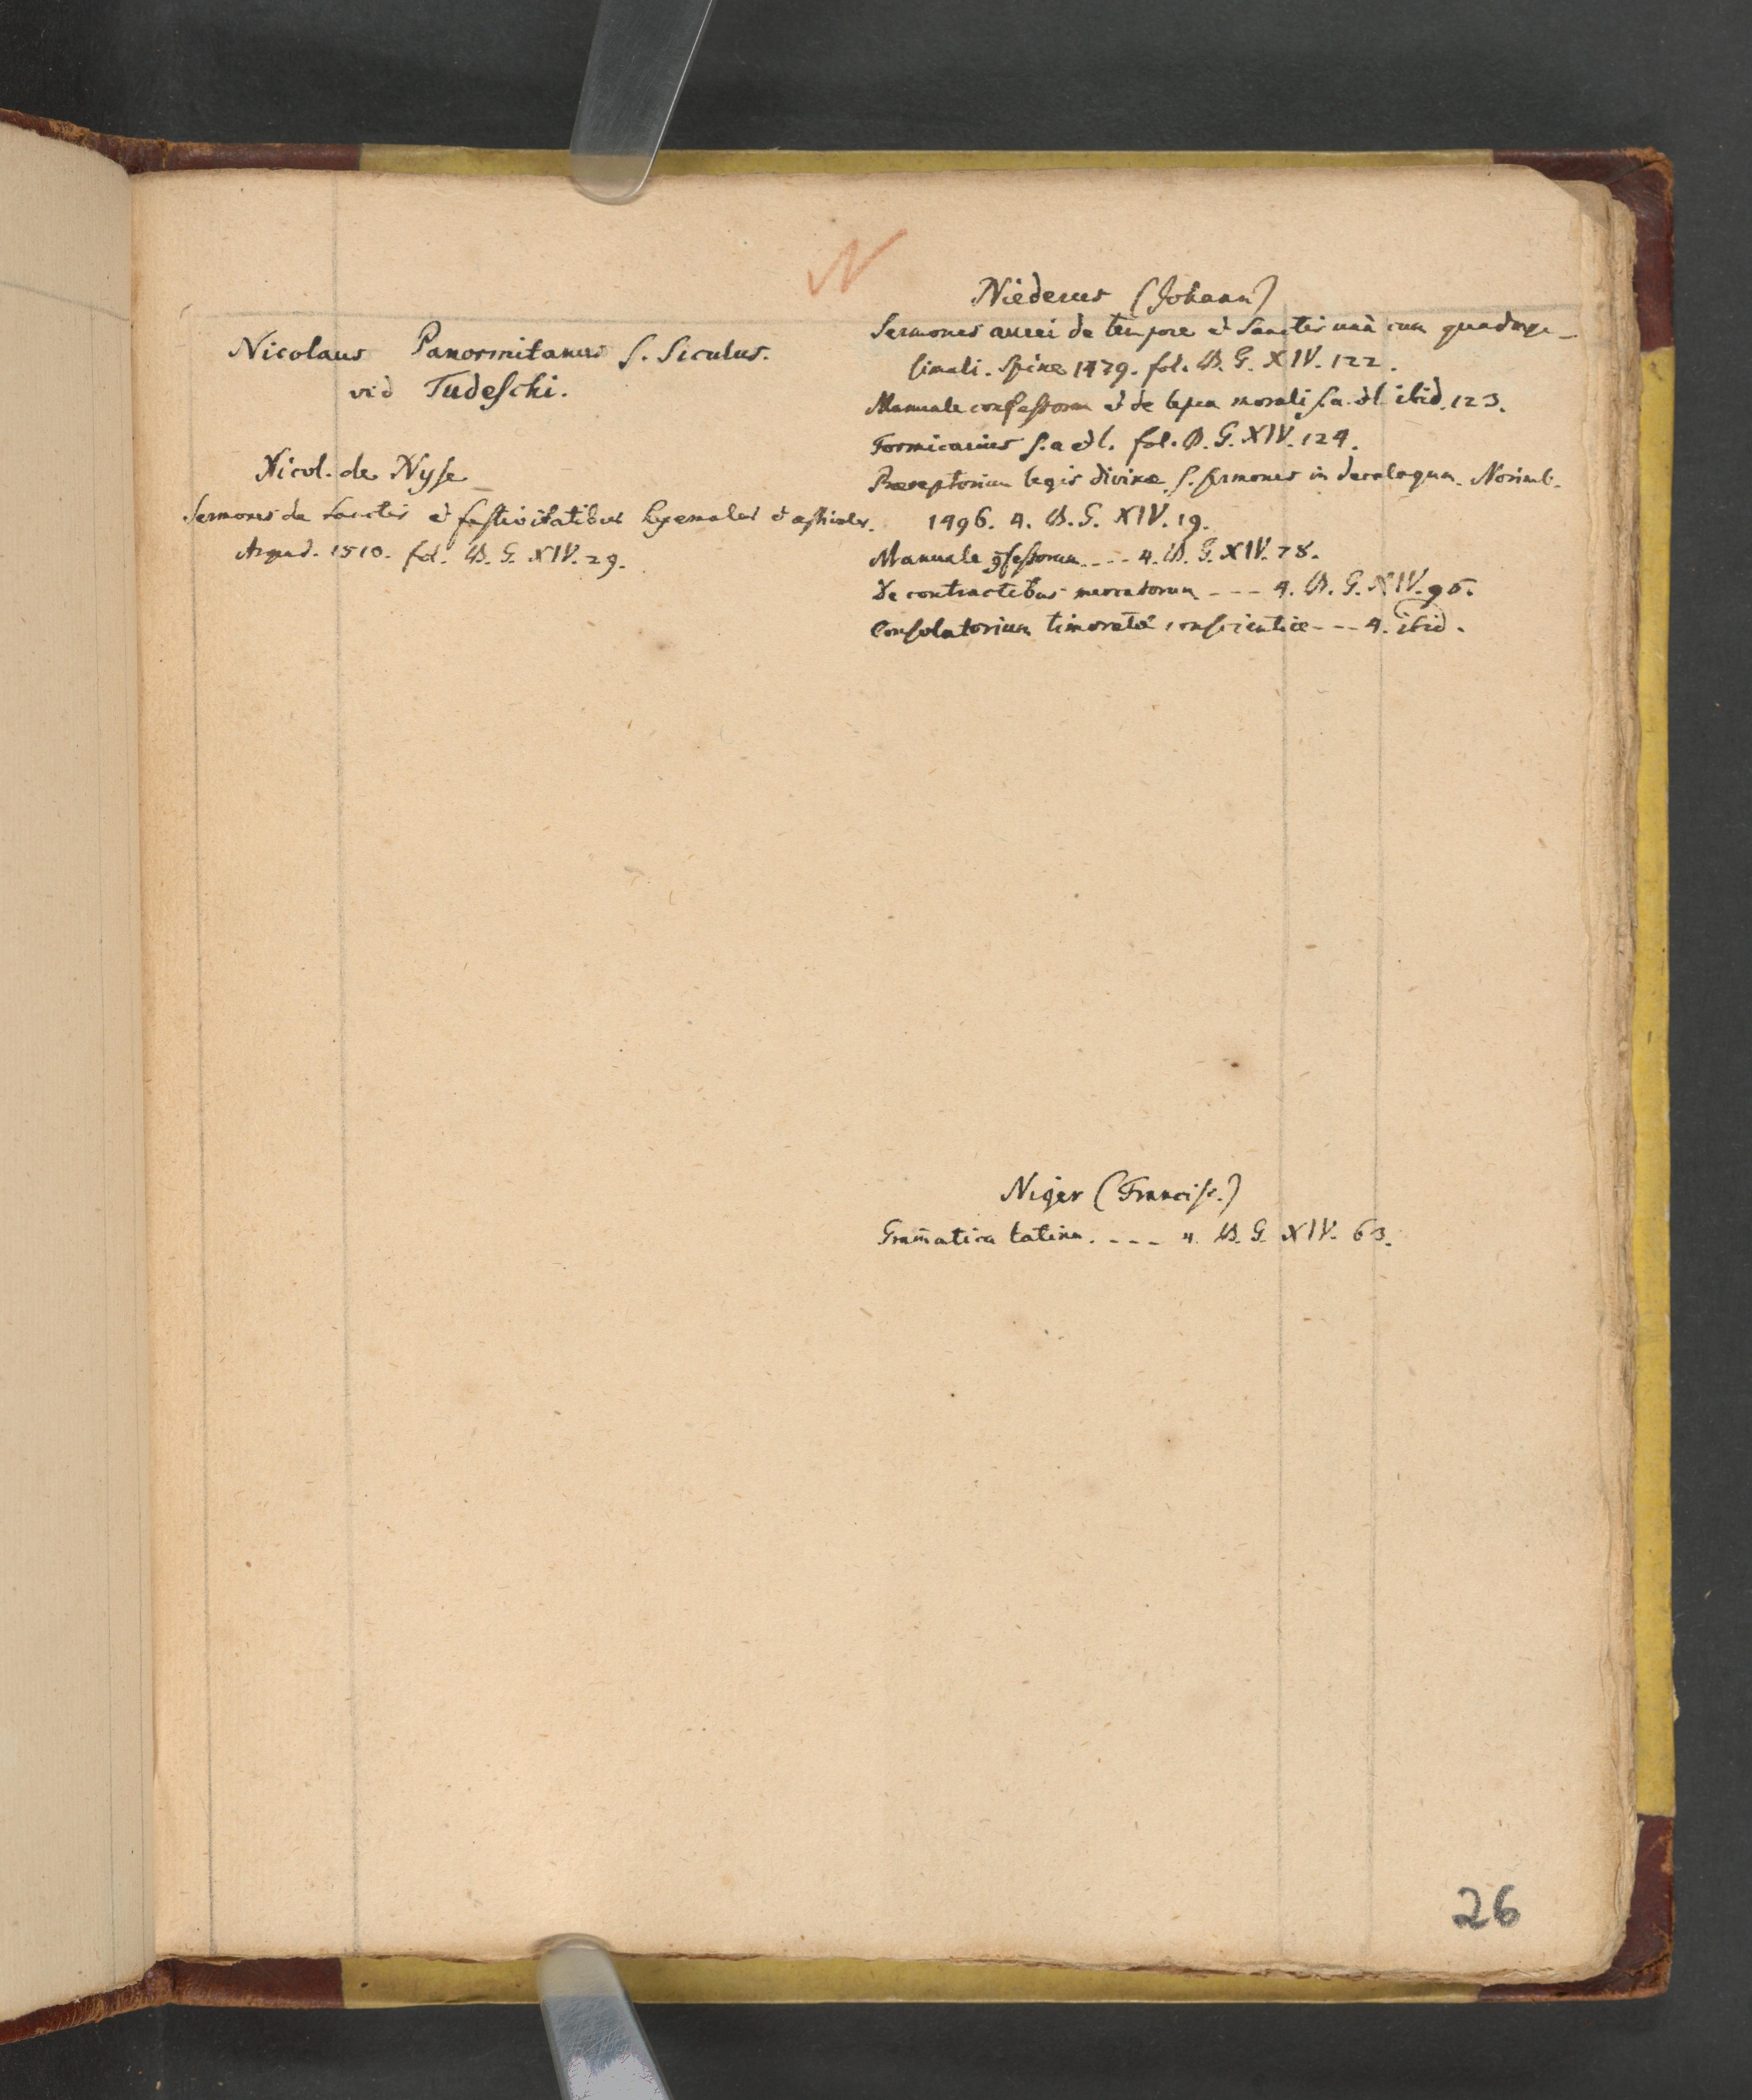 N
Nicolaus Panormitanus s. Siculus.
vid Tudeschi.
Nicol. de Nyse
Sermones de Sanctis et festivitatibus hyemales et aestivales.
Argent. 1510. fol. B. G. XIV. 29.
Niederus (Johann)
Sermones aurei de tempore et Sanctis unà cum quadrage-
simali. Spirae 1479. fol. B. G. XIV. 122.
Manuale confessorum et de lepra morali s. a. et l. ibid. 123.
Formicarius s. a et l. fol. B. G. XIV. 124.
Praeceptorium legis divinae s. sermones in decalogum. Norimb.
1496. 4. B. G. XIV. 19.
Manuale 9fessorum. --- 4. B. G. XIV. 78.
De contractibus mercatorum --- 4. B. G. XIV. 96.
Consolatorium timoratae conscientiae --- 4. ibid.
Niger (Francisc.)
Gram̄atica latina. --- 4. B. G. XIV. 63.
26